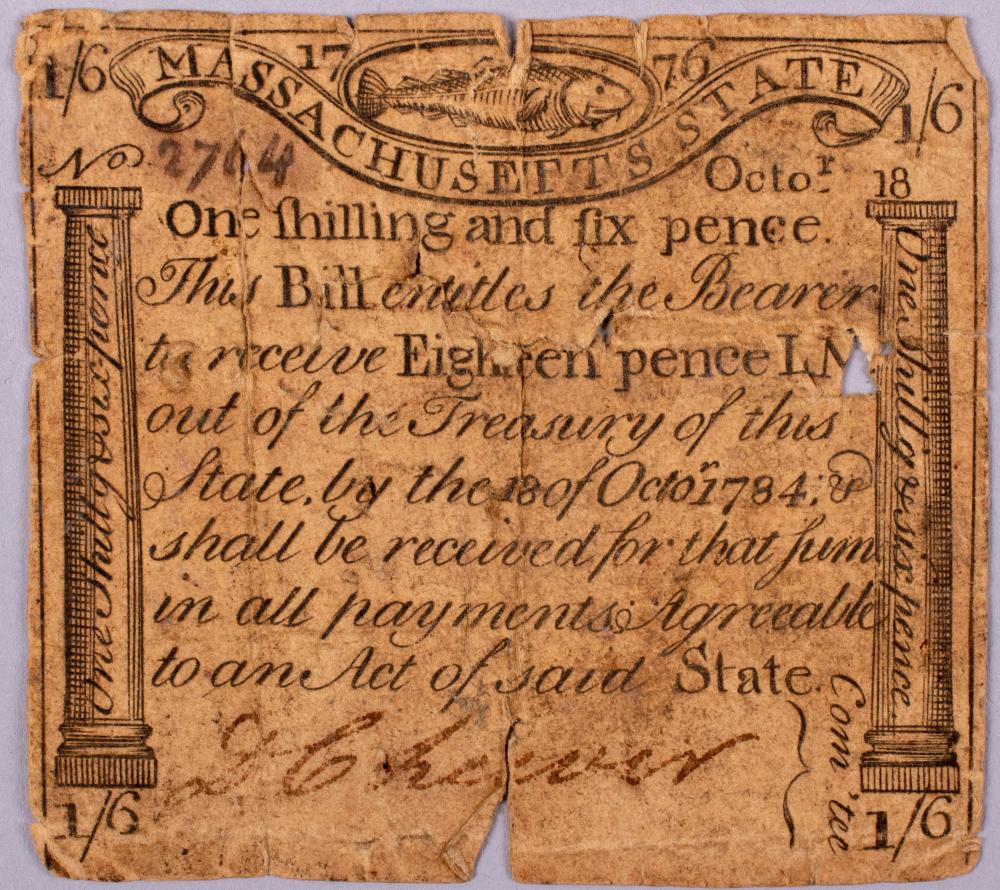 1/6 17 76 1/6
MASSACHUSETTS STATE
No 2764 Octo.r 18
One ſhilling and ſix pence.
This Bill entitles the Bearer
to receive Eighteen pence LM
out of the Treasury of this
State, by the 18 of Octor 1784; &
shall be received for that ſum
in all payments, Agreeable
to an Act of said State.
D Cheever
Com'tee
One Shilly & sixpence
One shilly & sixpence
1/6 1/6